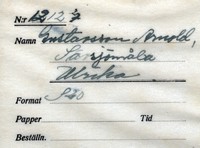 N:r 1212 ½
Namn Gustavsson Arnold,
Sarsjömåla
Ulrika
Format
Papper Tid
Beställn.